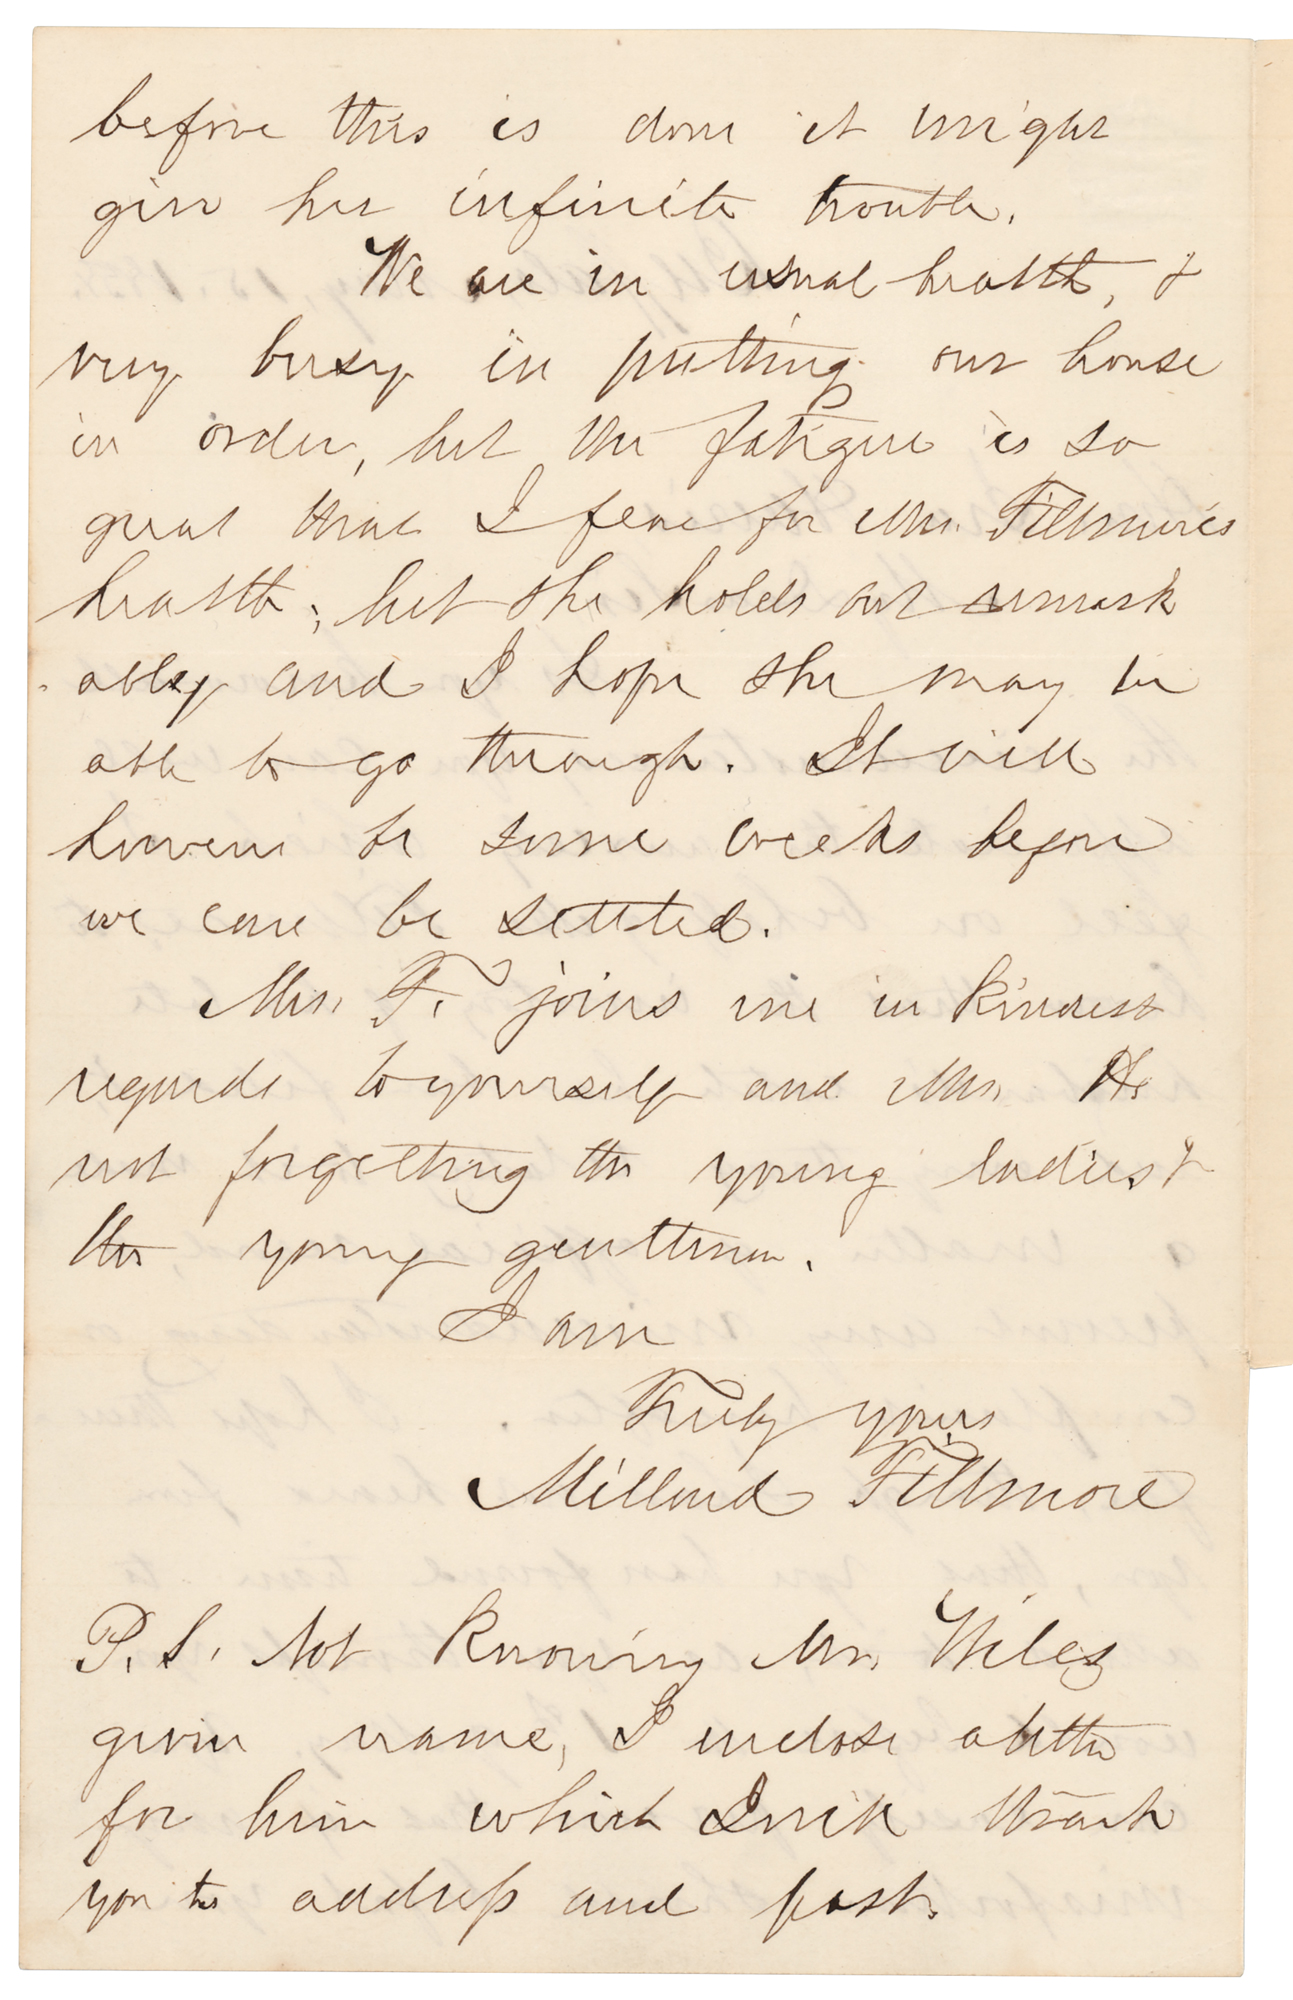 before this is done it might
give her infinite trouble.
We are in usual health, &
very busy in putting our house
in order, but the fatigue is so
great that I fear for Mrs. Fillmore's
health; but she holds out remark
ably and I hope she may be
able to go through. It will
however be some weeks before
we can be settled.
Mrs. F. joins me in kindest
regards to yourself and Mrs. H.
not forgetting the young ladies &
the young gentleman.
I am
Truly yours
Millard Fillmore
P.S. Not knowing Mr. Wiley
given name, I inclose a letter
for him which I will thank
you to address and post.